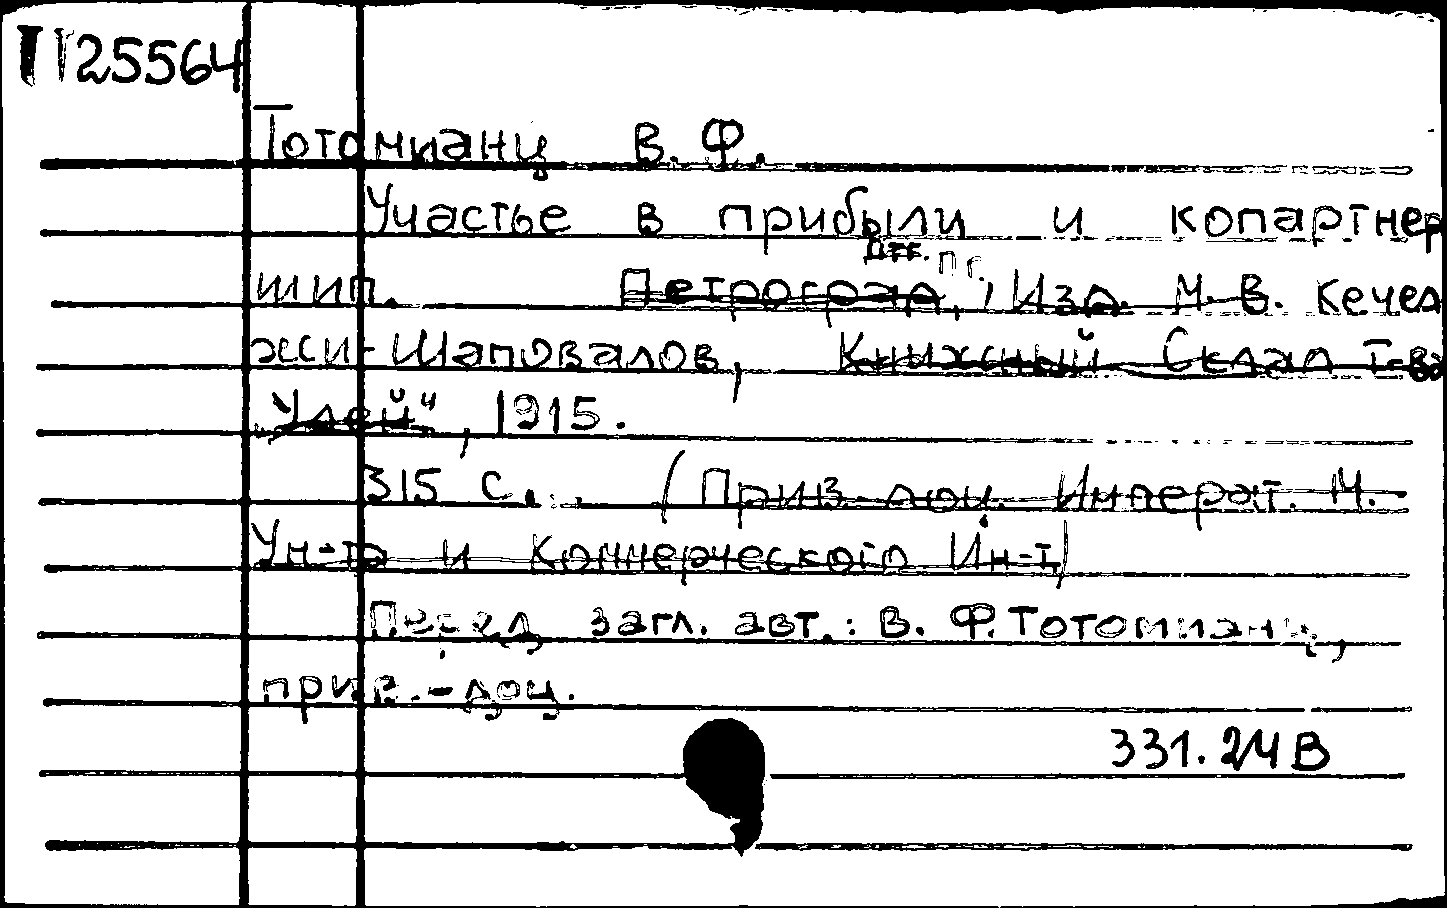 25564
Тотомианц В. Ф.
Участье в прибыли и копартнер
шип. Петроград, Пг. Изд. М. В. Кечед
жси-Шаповалов, Книжный Склад Т-ва
"Улей", 1915.
315 с. (Прив.-доц. Императ. М.
Ун-та и Коммерческого Ин-т)
Перед загл. авт.: В. Ф. Тотомианц,
прив.-доц.
331.24В